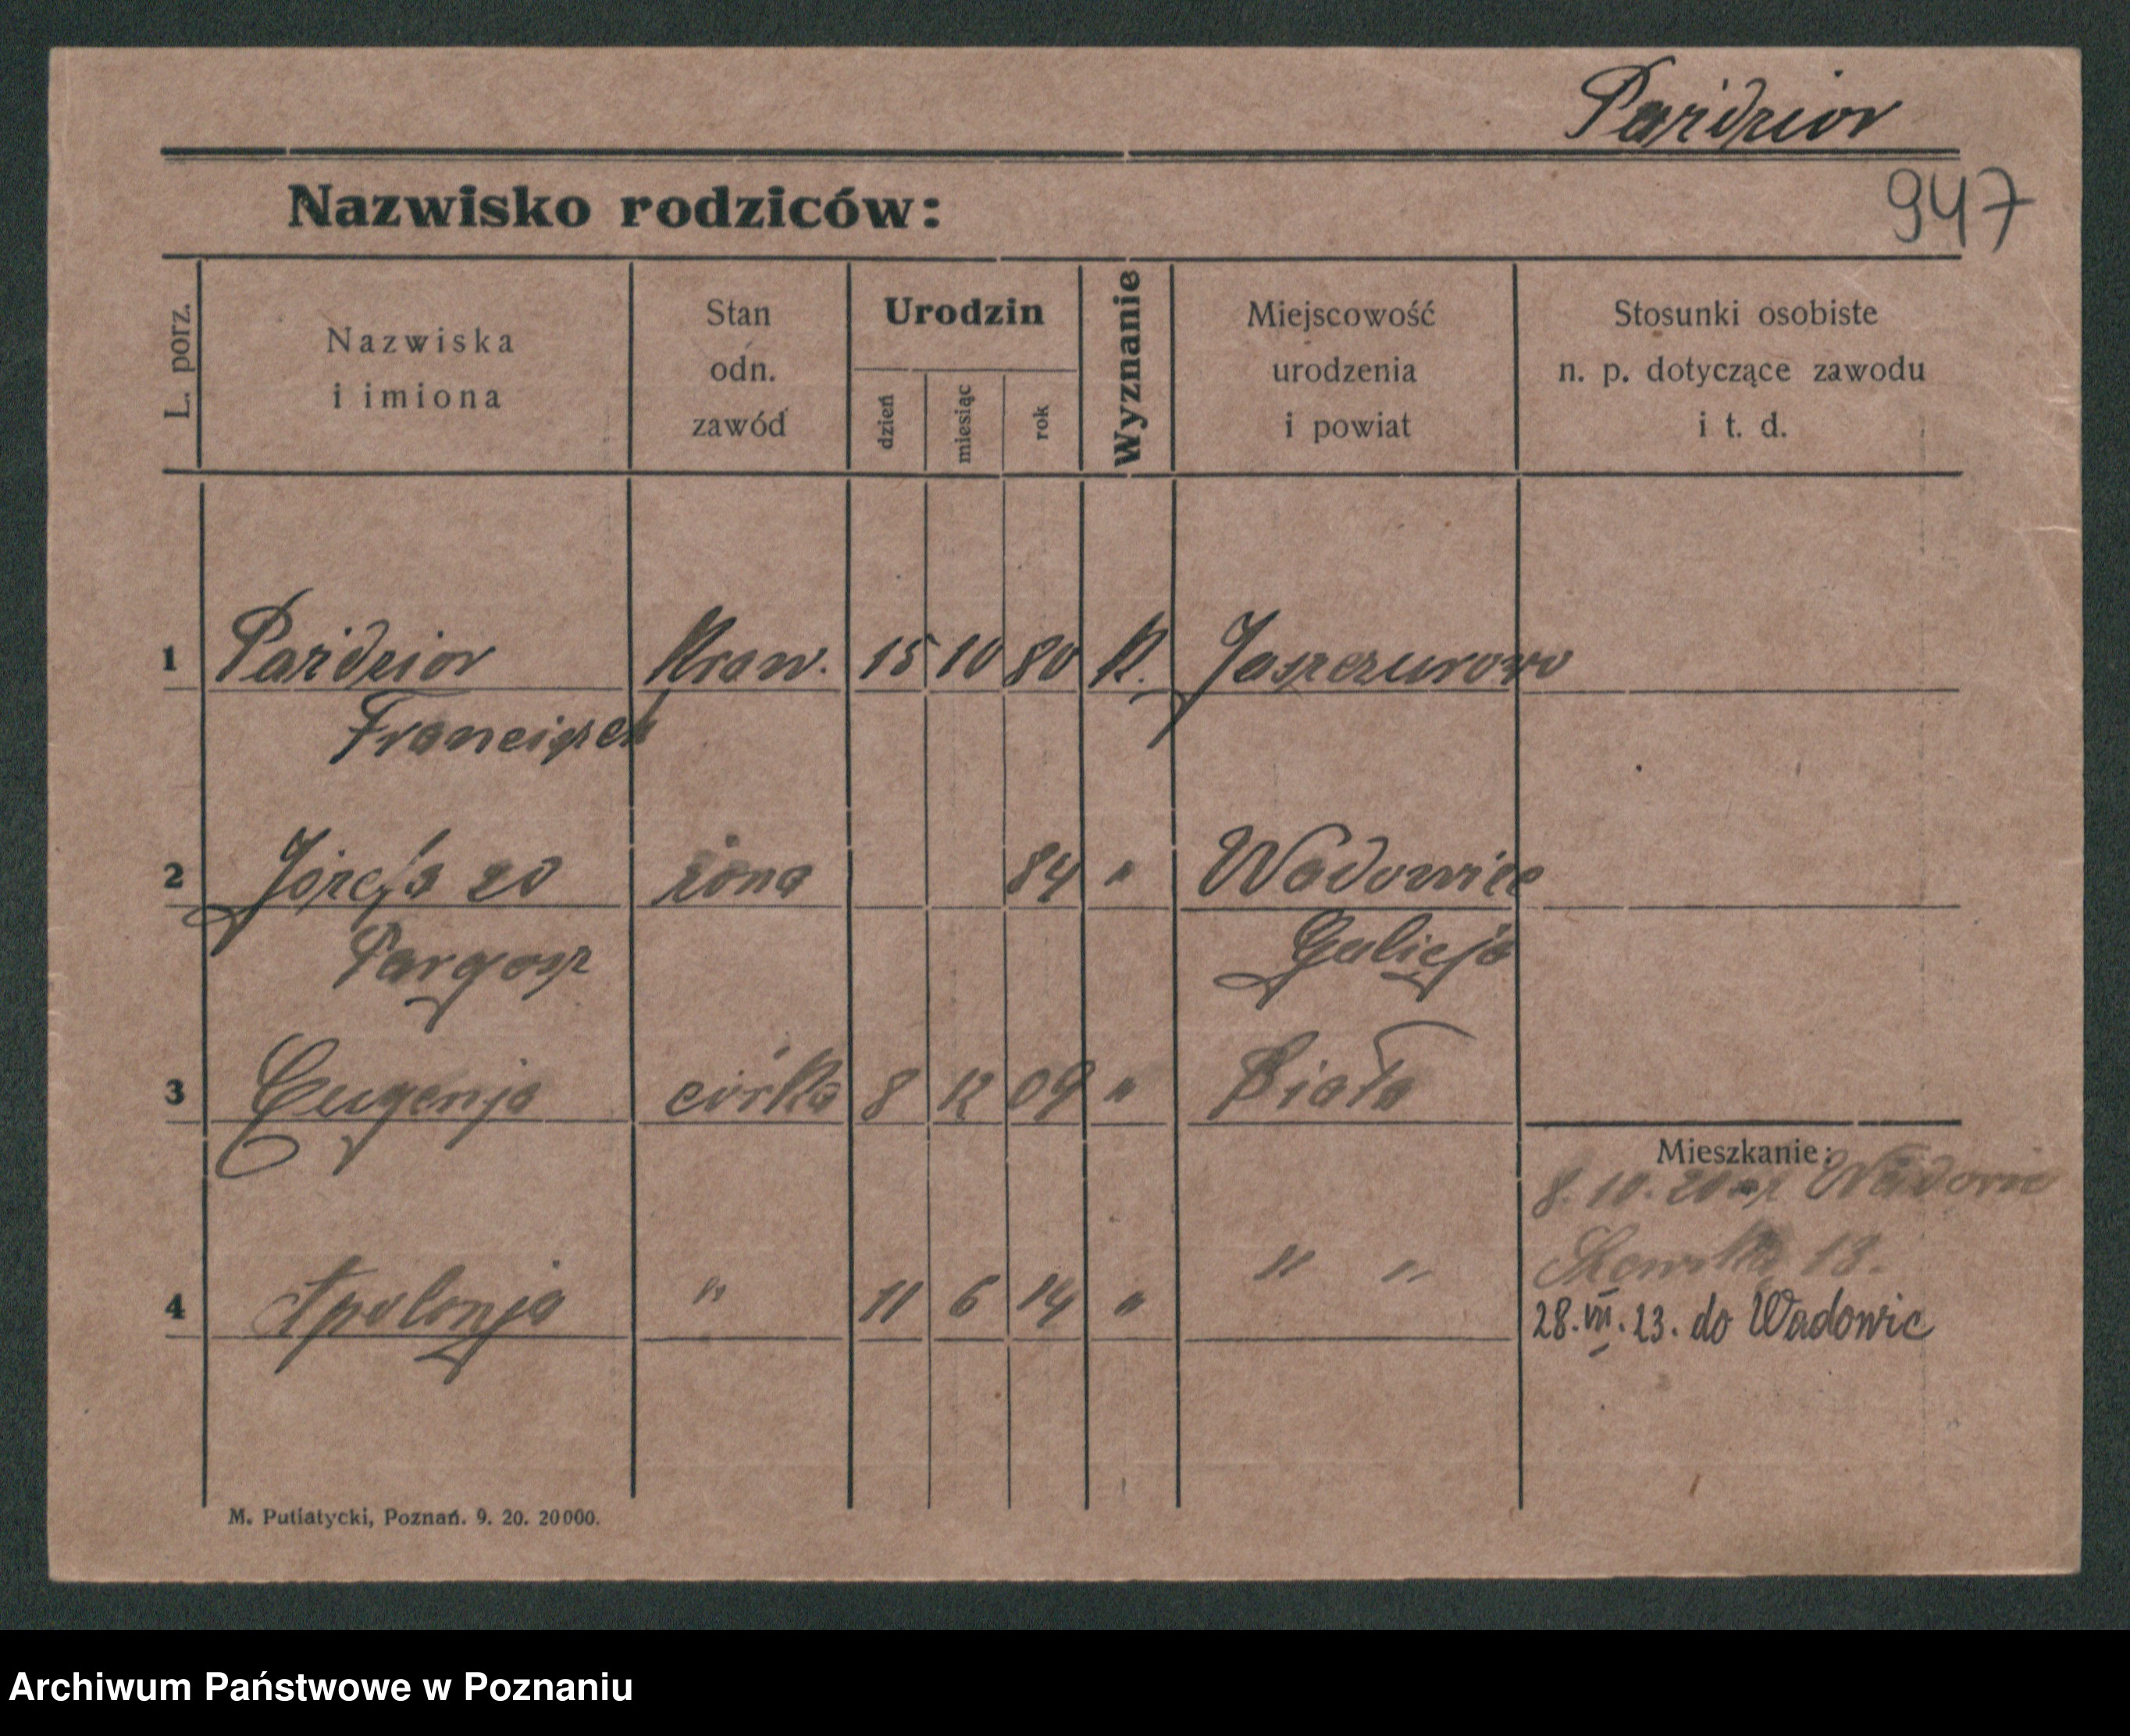 Paździor
947
Nazwisko rodziców:
L. porz.
Nazwiska
i imiona
Stan
odn.
zawód
Urodzin
dzień
miesiąc
rok
Wyznanie
Miejscowość
urodzenia
i powiat
Stosunki osobiste
n. p. dotyczące zawodu
i t. d.
1 Paździor Kraw. 15 10 80 K. Jaszczurowo
Franciszek
2 Józefa zd żona 84 " Wadowice
Pargosz Galicja
3 Eugenja córka 8 12 09 " Biała
Mieszkanie:
8. 10. 20 z Wadowic
13.
4 Apolonja " 11 6 14 " " "
28. VII. 23. do Wadowic
M. Putiatycki, Poznań. 9. 20. 20000.
Archiwum Państwowe w Poznaniu